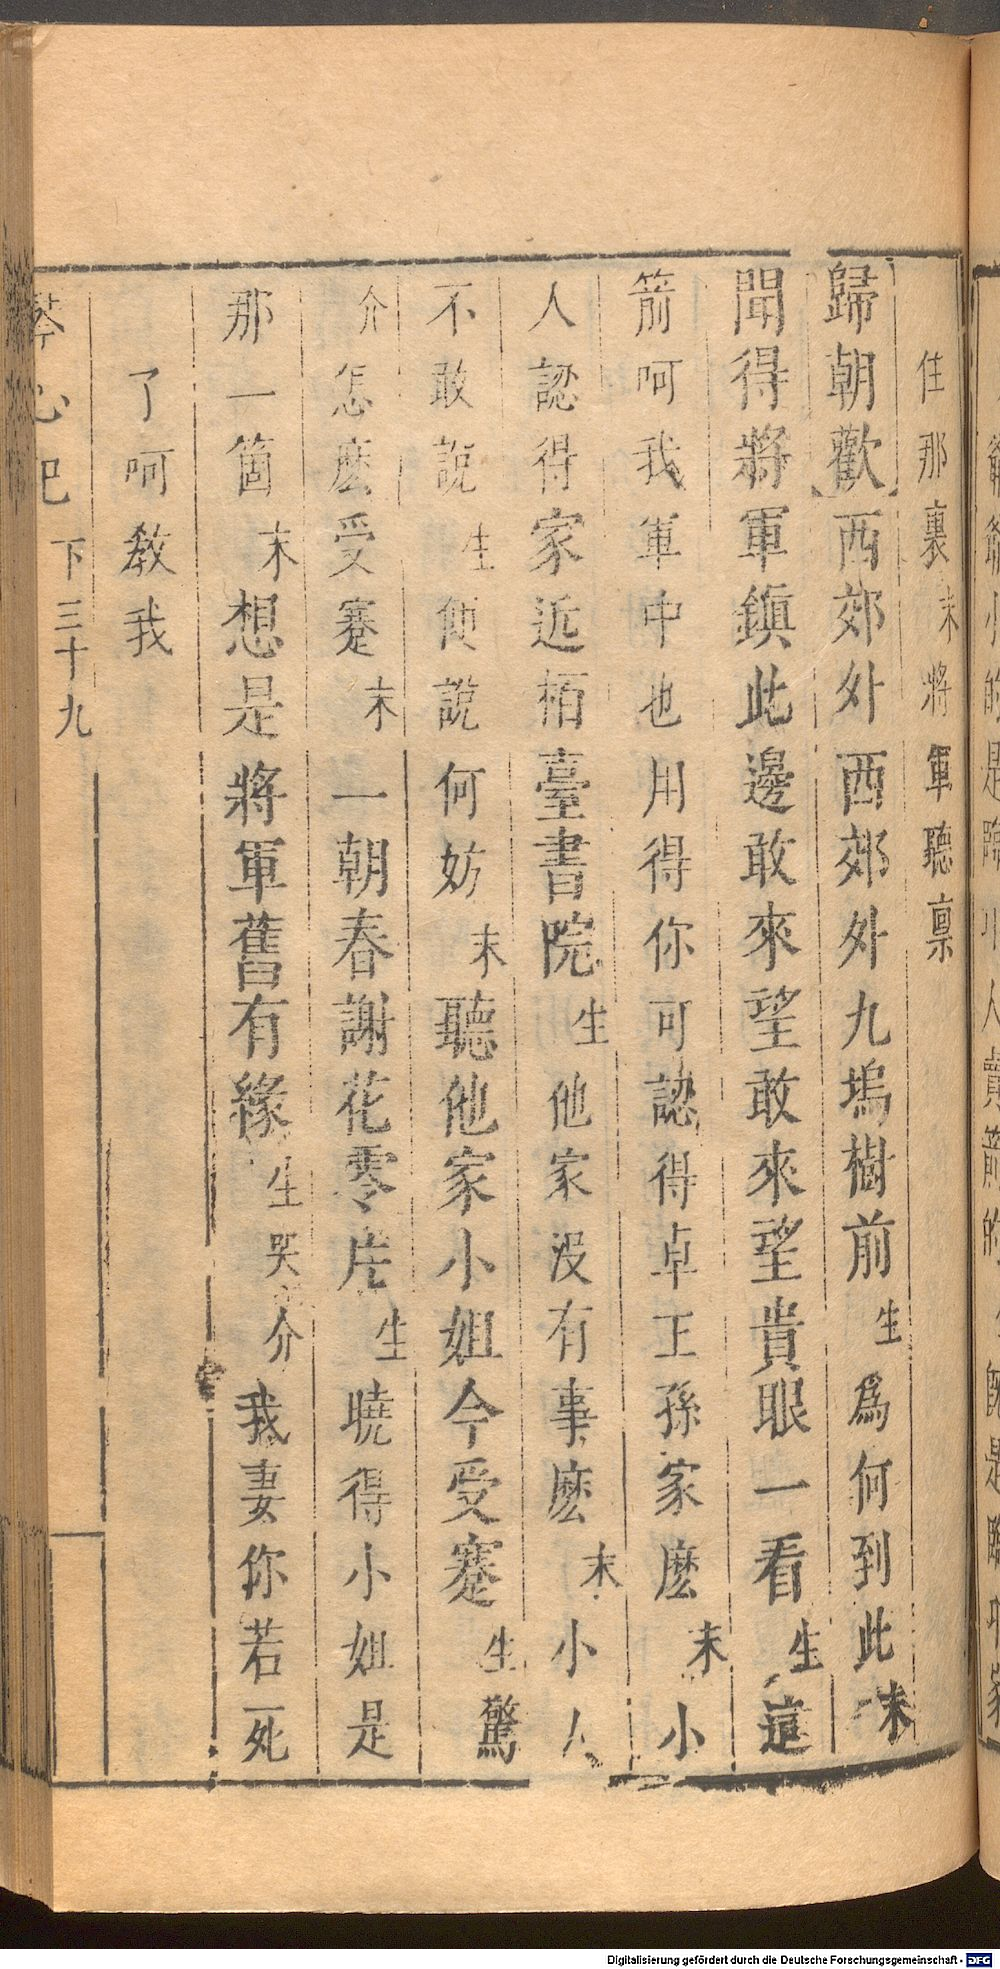 住那裏末將軍聽禀
歸朝歡西郊外西郊外九塢樹前生爲何到此末
聞得將軍鎭此邊敢來望敢來望貴眼一看生這
箭呵我軍中也用得你可認得卓王孫家麽末小
人認得家近栢臺書院生他家没有事麽末小人
不敢說生便說何妨末聽他家小姐今受蹇生驚
介怎麽受蹇末一朝春謝花零片生曉得小姐是
那一箇末想是將軍舊有緣生哭介我妻你若死
了呵教我
琴心記下三十九
Digitalisierung gefördert durch die Deutsche Forschungsgemeinschaft - DFG